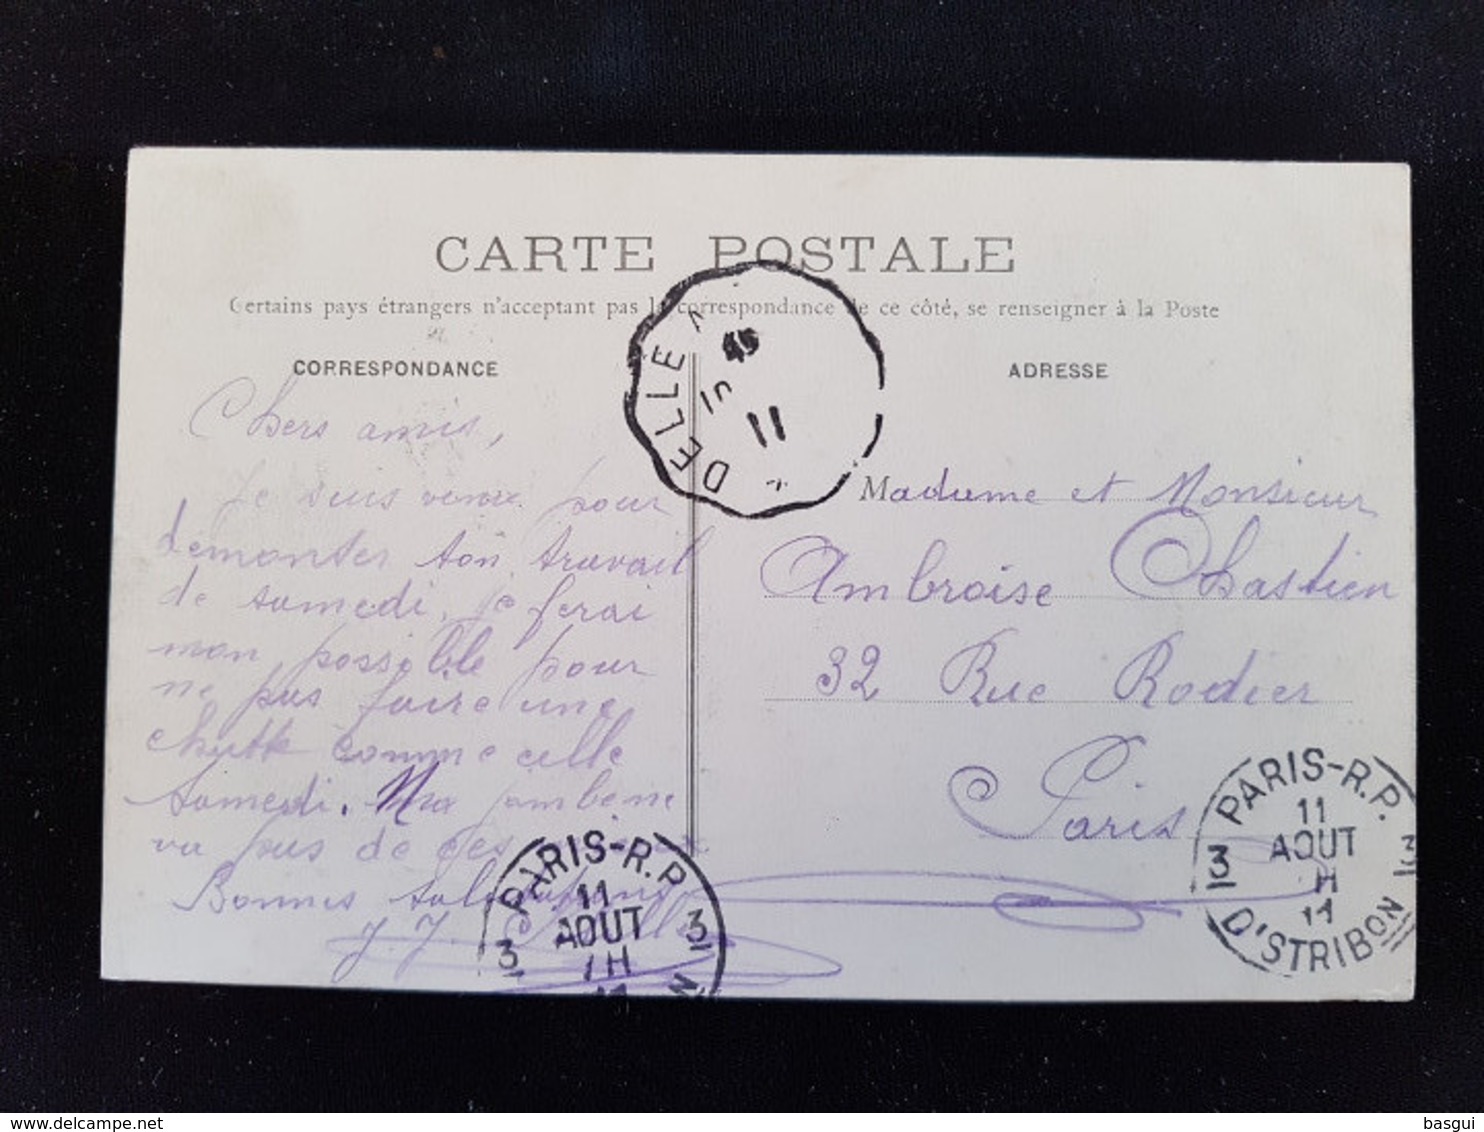 CARTE POSTALE
Certains pays étrangers n'acceptant pas la correspondance de ce côté, se renseigner à la Poste
CORRESPONDANCE
Chers amis,
Je suis venu pour
démonter ton travail
de samedi, je ferai
mon possible pour
ne pas faire une
chutte comme celle
samedi. Ma
va pas de ces
Bonnes salutations
J J.
ADRESSE
Madame et Monsieur
Ambroise Chastien
32 Rue Rodier
Paris
DELLE
11
PARIS-R.P.
3 3
11
AOUT
7H
PARIS-R.P.
3 3
11
AOUT
H
11
D'STRIBON
basgui